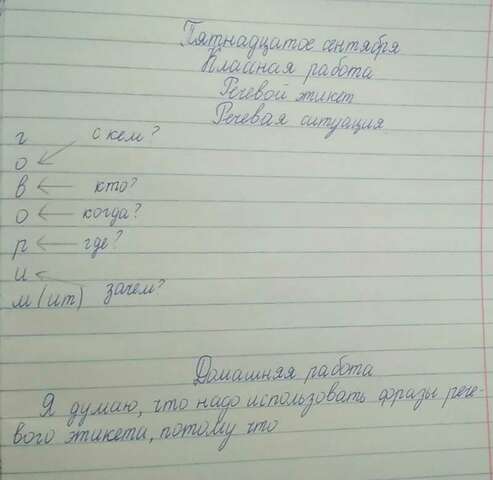 Пятнадцатое сентября
Классная работа
Речевой этикет
Речевая ситуация
г с кем?
о
в кто?
о когда?
р где?
и
м(ит) зачем?
Домашняя работа
Я думаю, что надо использовать фразы рече-
вого этикета, потому что